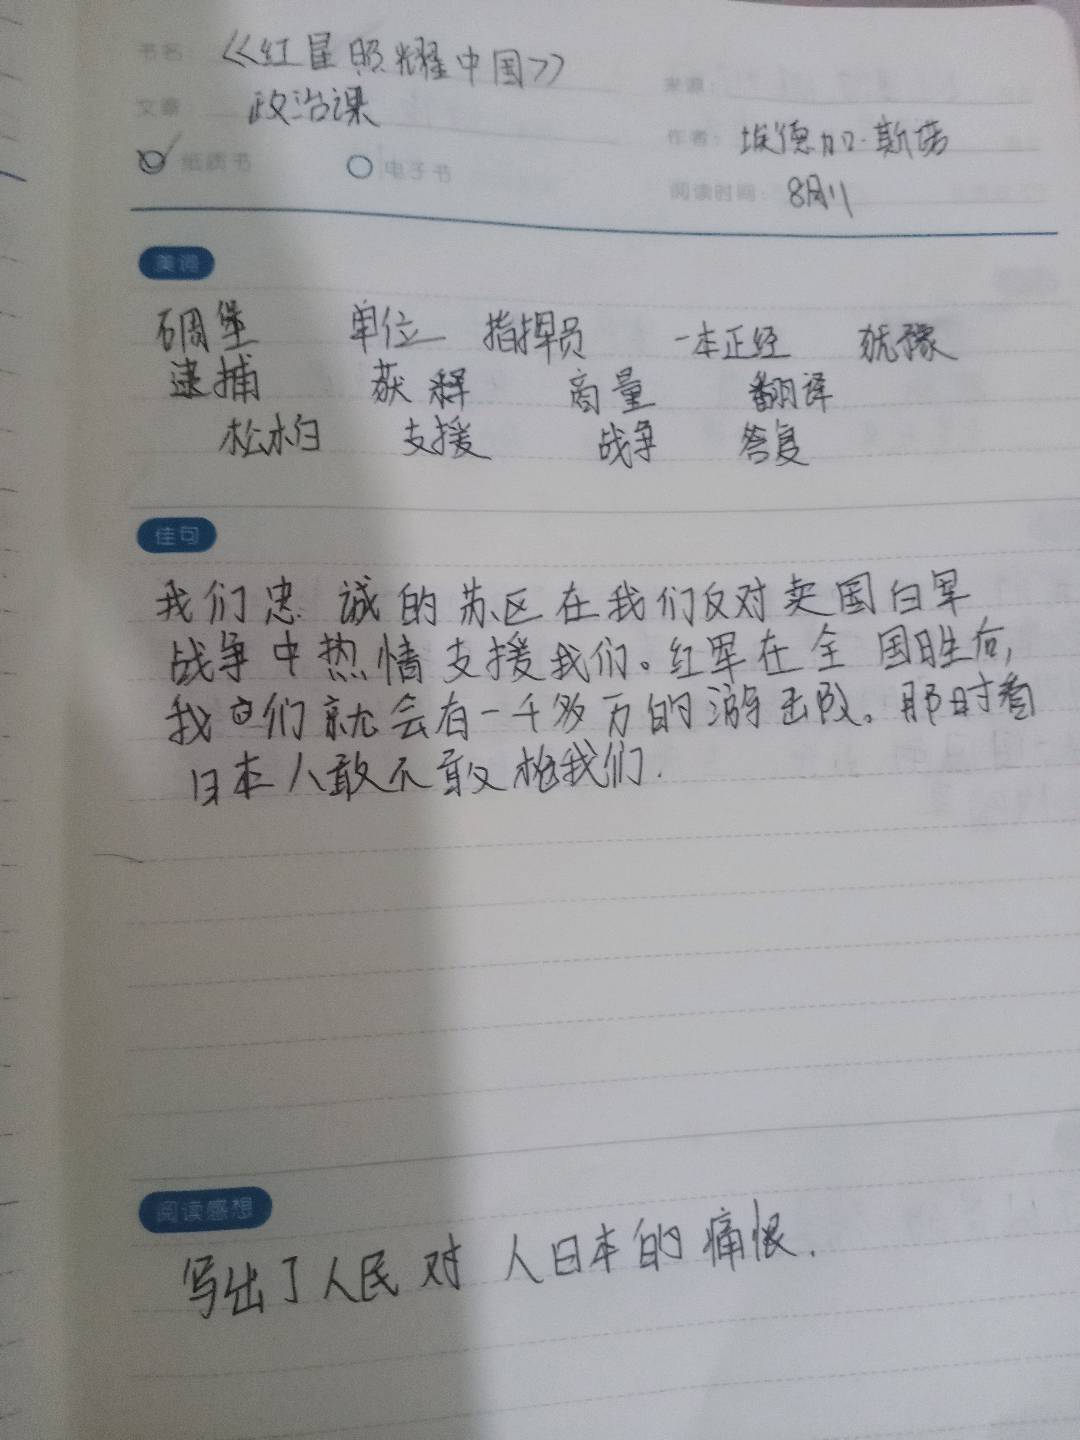 书名: 《红星照耀中国》
文章 政治课
来源:
作者: 埃德加·斯诺
纸质书 电子书
阅读时间: 8月11
美词
碉堡 单位 指挥员 一本正经 犹豫
逮捕 获释 商量 翻译
松柏 支援 战争 答复
佳句
我们忠诚的苏区在我们反对卖国白军
战争中热情支援我们。红军在全国胜后,
我们就会有一千多万的游击队。那时看
日本人敢不敢抢我们.
阅读感想
写出了人民对人日本的痛恨.